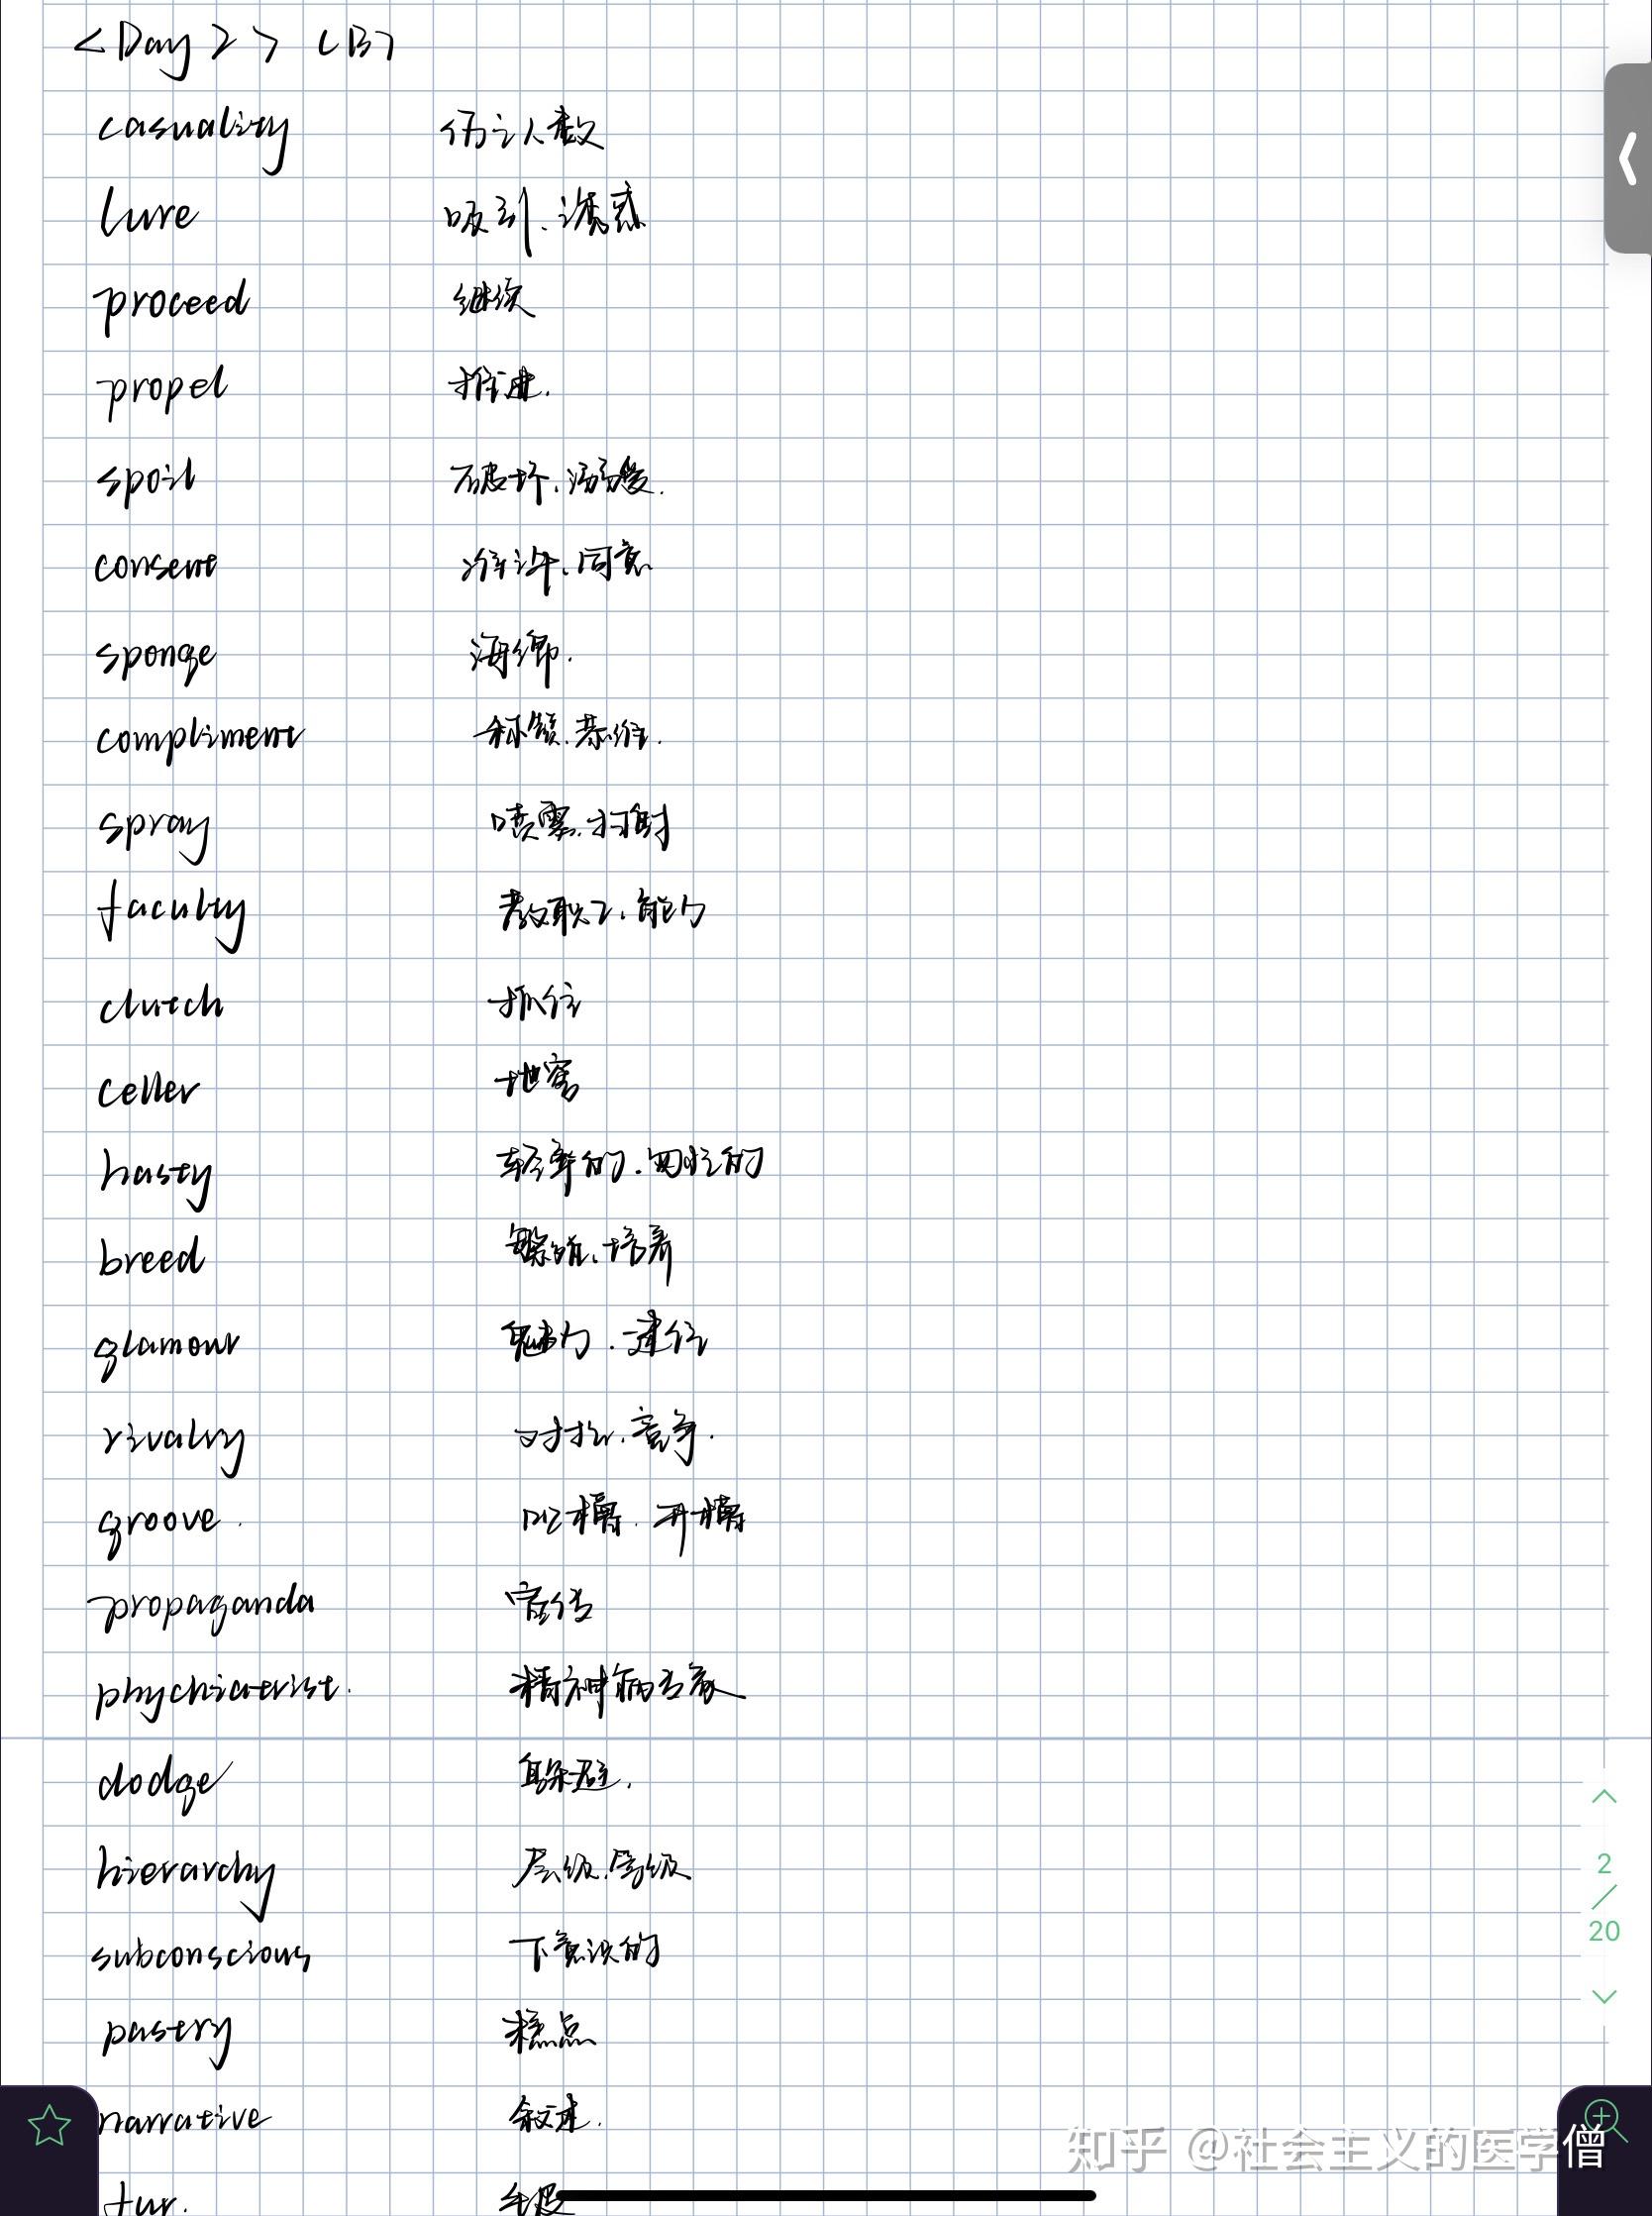 <Day 2> (B)
casuality 伤亡人数
lure 吸引、诱惑
proceed 继续
propel 推进.
spoil 破坏、溺爱.
consent 准许、同意
sponge 海绵.
compliment 称赞、恭维.
spray 喷雾、扫射
faculty 教职工、能力
clutch 抓住
celler 地窖
hasty 轻率的、匆忙的
breed 繁殖、培养
glamour 魅力、迷住
rivalry 对抗、竞争.
groove. 凹槽、开槽
propaganda 宣传
phychiatrist. 精神病专家
dodge 躲避.
hierarchy 层级、等级
subconscious 下意识的
pastry 糕点
narrative 叙述.
fur. 毛皮
2
/
20
知乎 @社会主义的医学僧